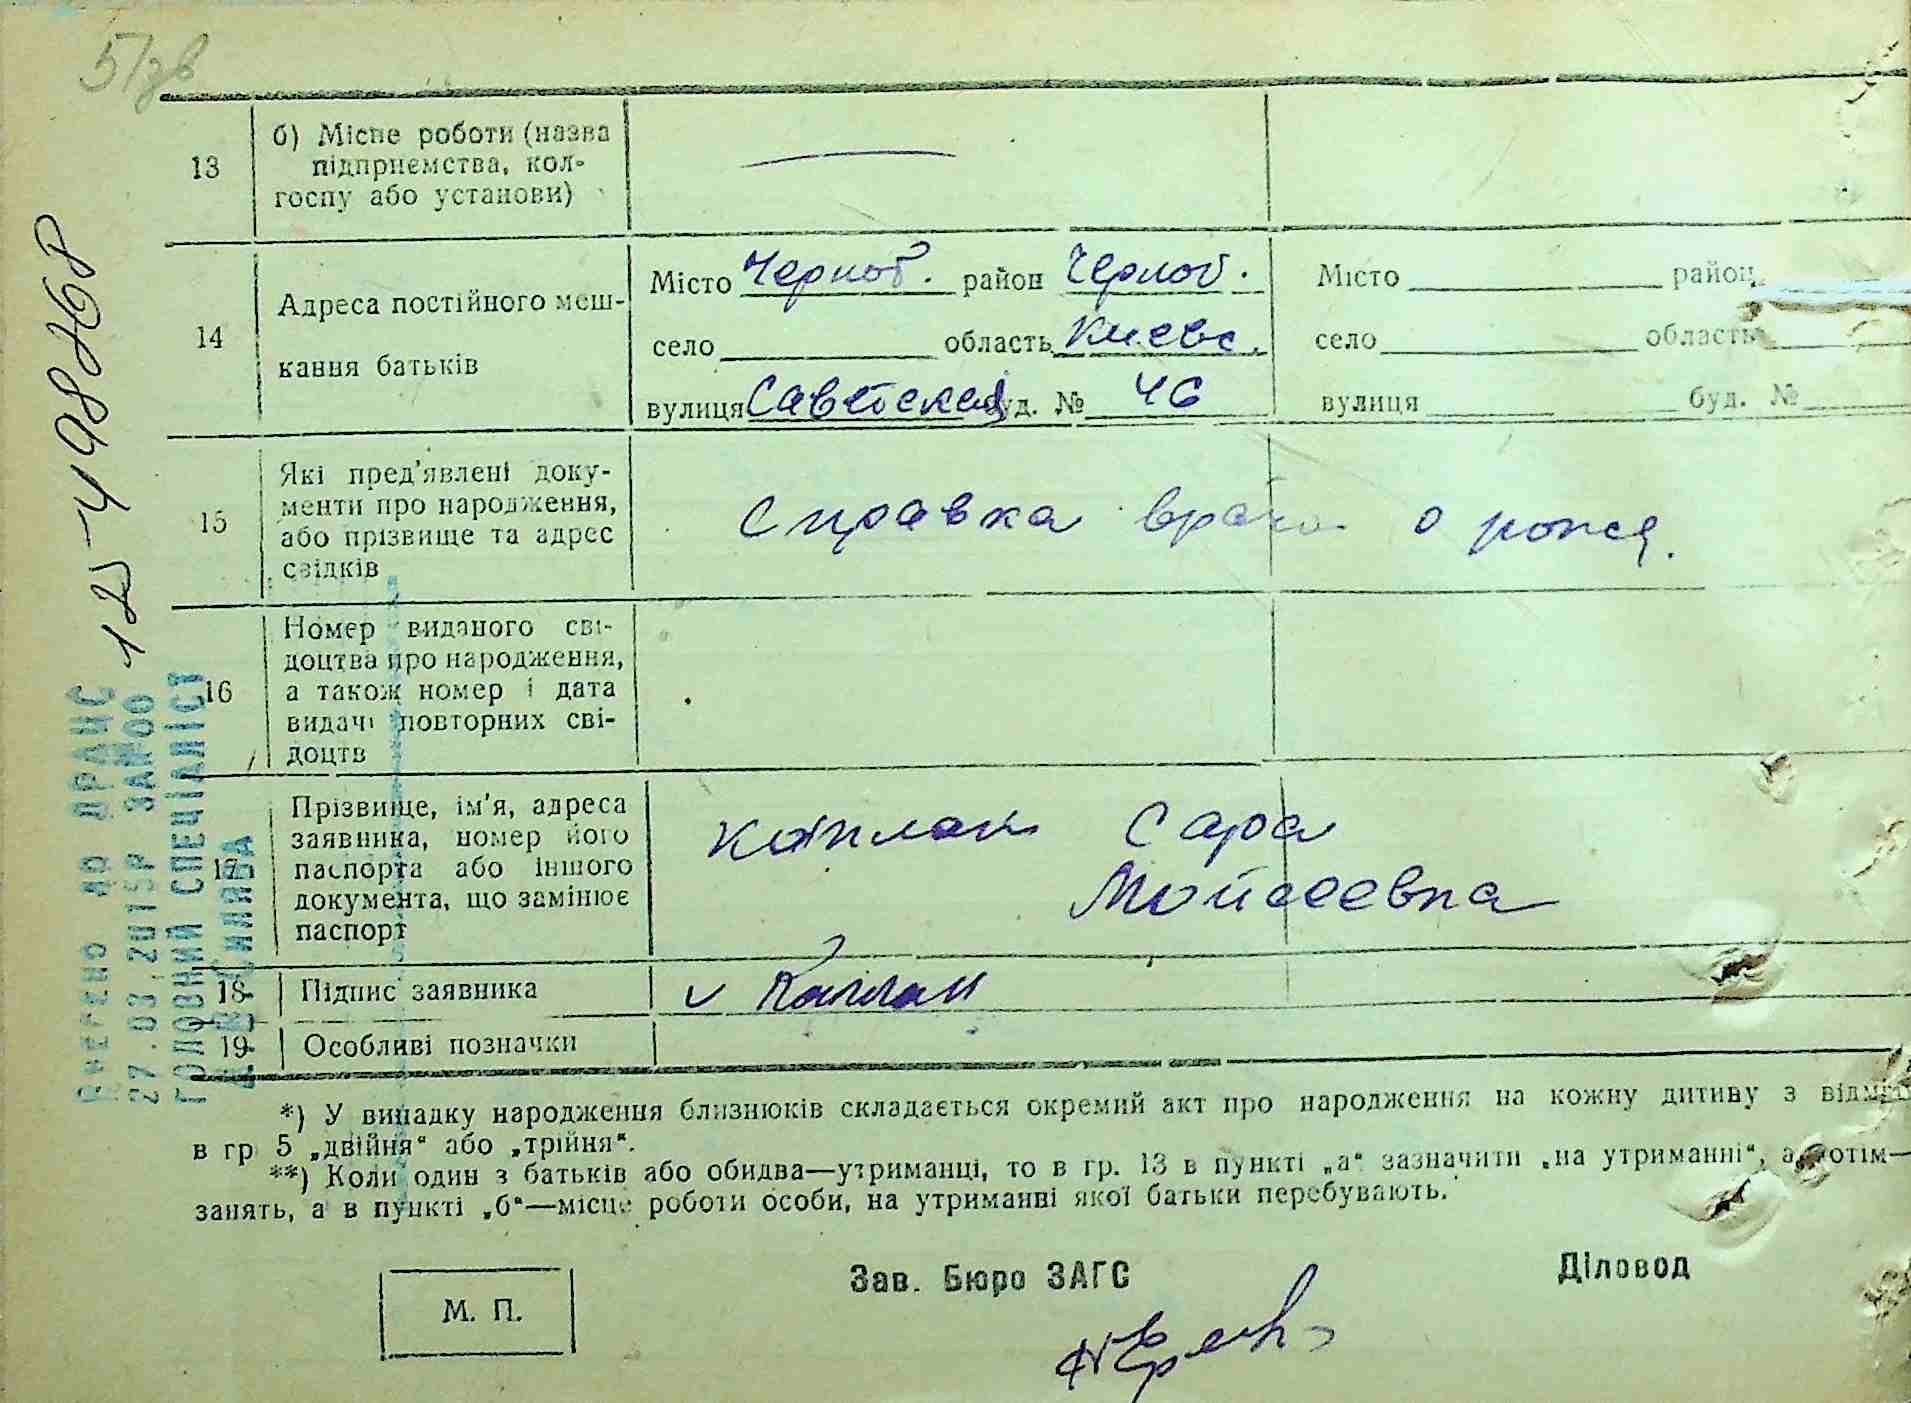 5/зв
13
б) Місце роботи (назва
підприємства, кол-
госпу або установи)
14
Адреса постійного меш-
кання батьків
Місто Черноб. район Черноб.
село область Киевс.
вулиця Саветская буд. № 46
Місто район
село область
вулиця буд. №
15
Які пред'явлені доку-
менти про народження,
або прізвище та адрес
свідків
Справка врача о рожд.
16
Номер виданого сві-
доцтва про народження,
а також номер і дата
видачі повторних сві-
доцтв
17
Прізвище, ім'я, адреса
заявника, номер його
паспорта або іншого
документа, що замінює
паспорт
Каплан Сара
Мойсеевна
18
Підпис заявника
v Каплан
19
Особливі позначки
*) У випадку народження близнюків складається окремий акт про народження на кожну дитину з відміт
в гр 5 „двійня“ або „трійня“.
**) Коли один з батьків або обидва—утриманці, то в гр. 13 в пункті „а“ зазначити „на утриманні“, а потім—
занять, а в пункті „б“—місце роботи особи, на утриманні якої батьки перебувають.
М. П.
Зав. Бюро ЗАГС
Діловод
ВНЕСЕНО ДО ДРАЦС
27.03.2015Р ЗАМ00
ГОЛОВНИЙ СПЕЦІАЛІСТ